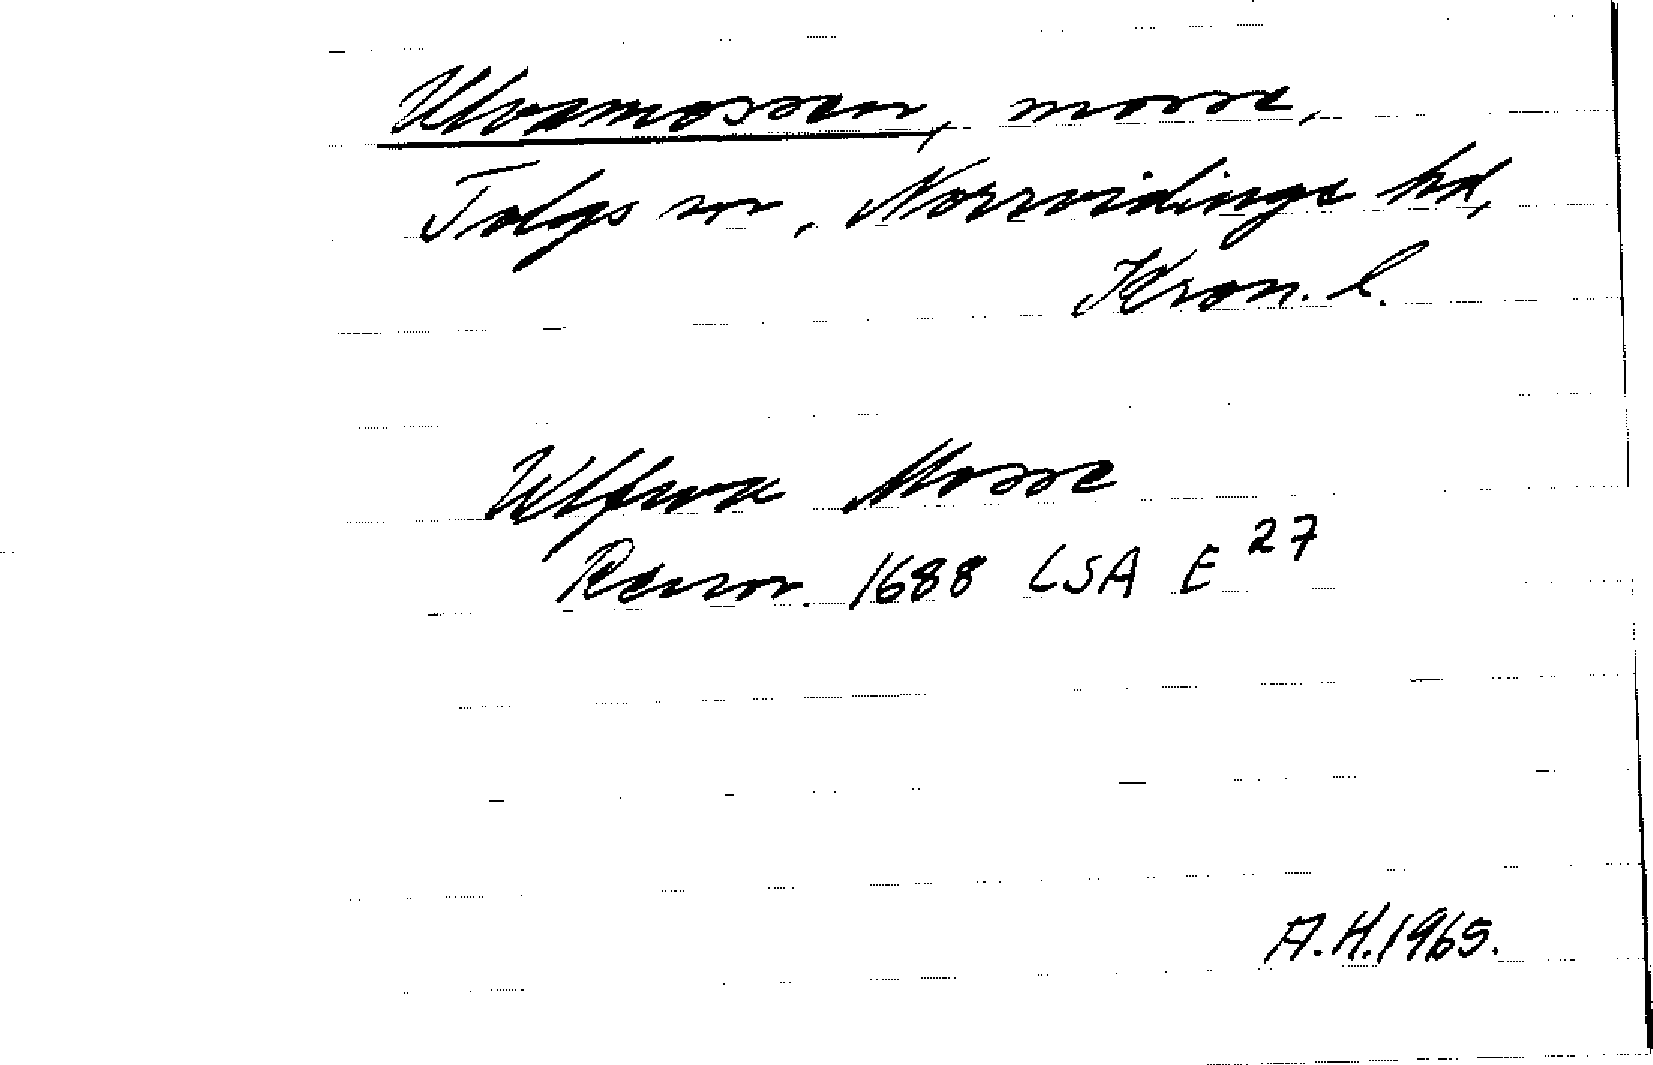 Ulvamossen, mosse,
Tolgs sn, Norrvidinge hd,
Kron. l.
Ulfwa Mosse
Rensn. 1688 LSA E 27
A.H. 1965.